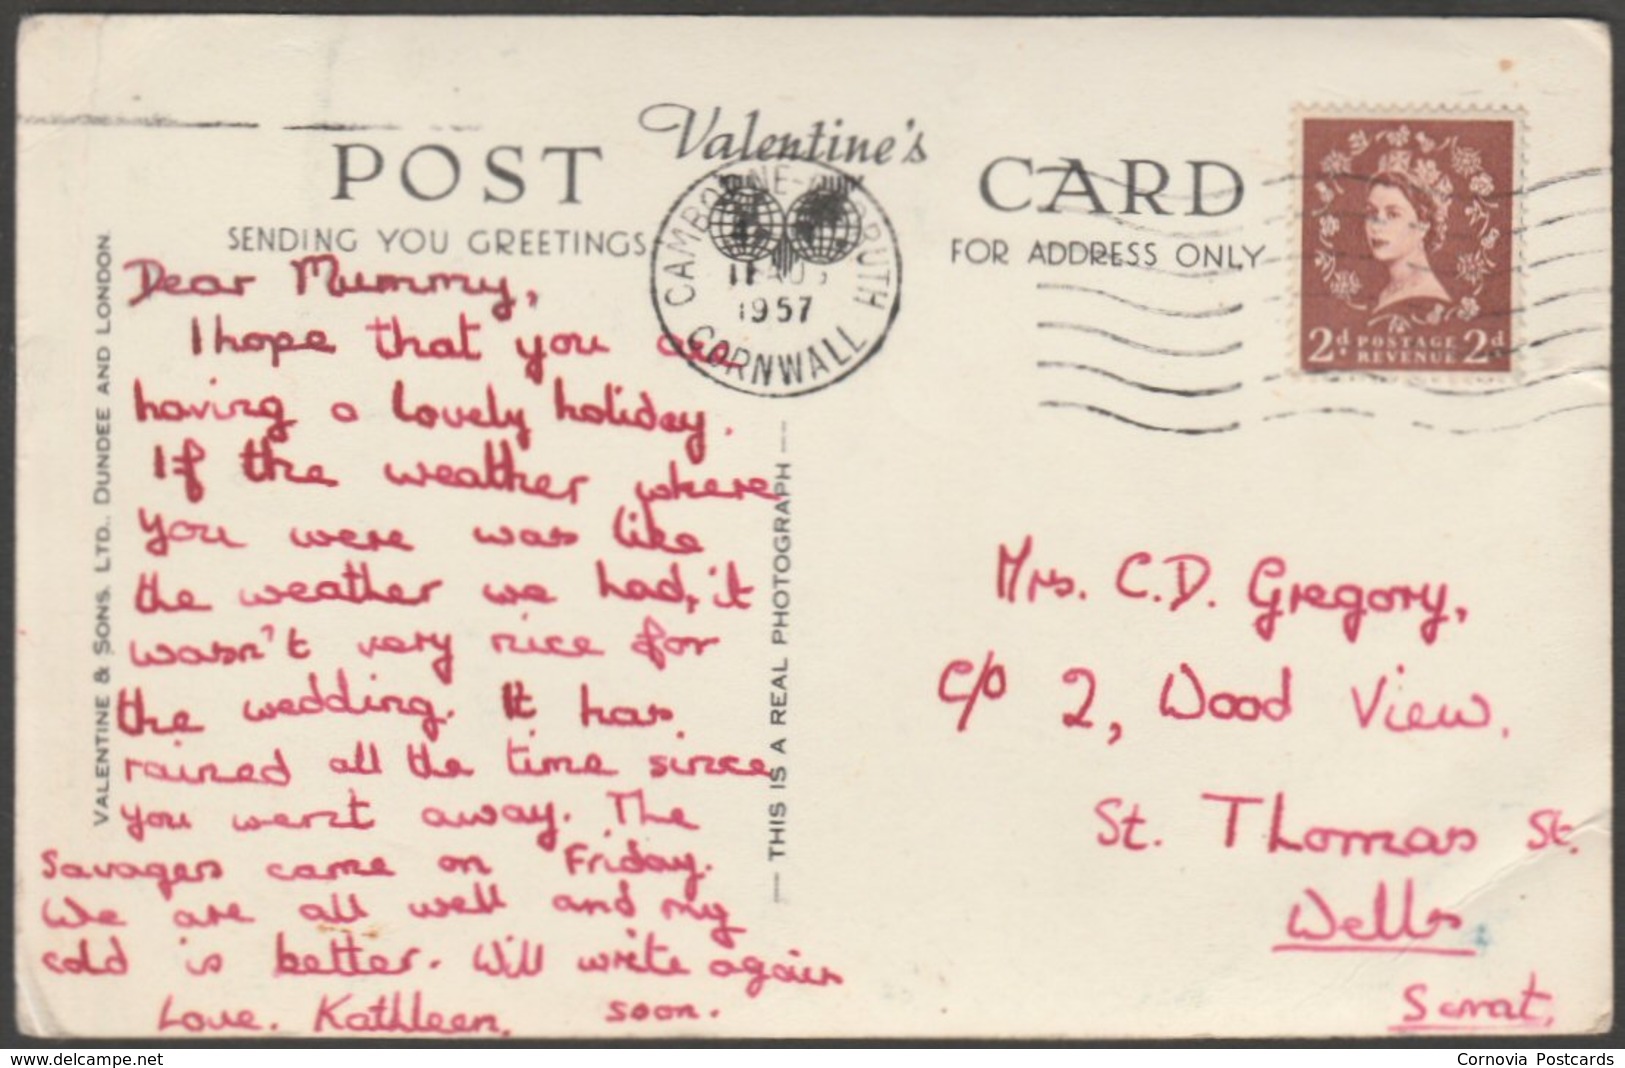 POST
Valentine's
CARD
SENDING YOU GREETINGS
FOR ADDRESS ONLY
CAMBORNE-REDRUTH
11 AUG
1957
CORNWALL
2d POSTAGE REVENUE 2d
VALENTINE & SONS, LTD., DUNDEE AND LONDON.
THIS IS A REAL PHOTOGRAPH
Dear Mummy,
I hope that you are
having a lovely holiday.
If the weather where
you were was like
the weather we had, it
wasn't very nice for
the wedding. It has
rained all the time since
you went away. The
Savages came on Friday.
We are all well and my
cold is better. Will write again
soon.
Love. Kathleen.
Mrs. C.D. Gregory,
c/o 2, Wood View.
St. Thomas St.
Wells
Somst.
www.delcampe.net
Cornovia Postcards